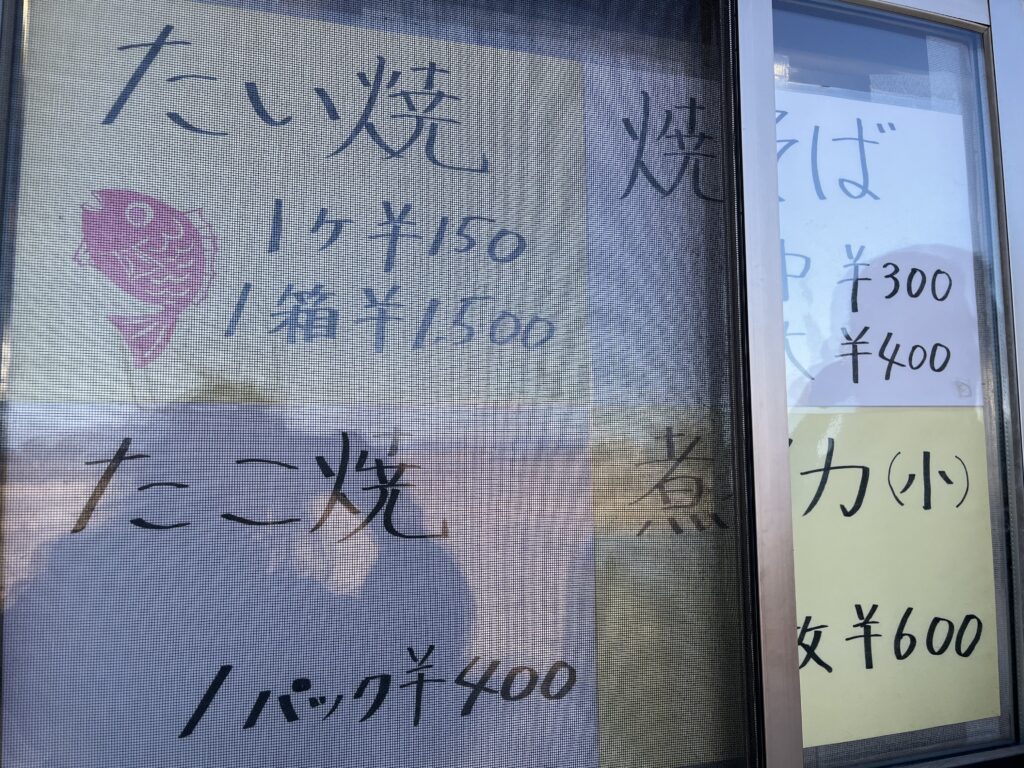 たい焼
1ヶ¥150
1箱¥1500
たこ焼
1パック¥400
焼そば
中 ¥300
大 ¥400
煮イカ(小)
枚¥600